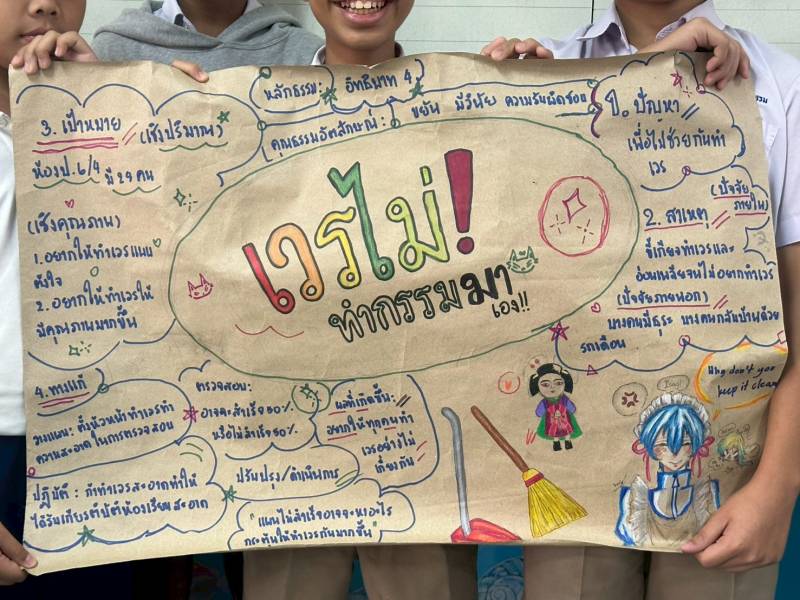 หลักธรรม: อิทธิบาท 4
คุณธรรมอัตลักษณ์: ขยัน มีวินัย ความรับผิดชอบ
เวรไม่!
ทำกรรมมา
เอง!!
1. ปัญหา
เพื่อไม่ช่วยกันทำ
เวร
2. สาเหตุ (ปัจจัย
ภายใน)
ขี้เกียจทำเวรและ
อ่อนเพลียจนไม่อยากทำเวร
(ปัจจัยภายนอก)
บางคนมีธุระ บางคนกลับบ้านด้วย
รถเดือน
3. เป้าหมาย (เชิงปริมาณ)
ห้องป.6/4 มี 29 คน
(เชิงคุณภาพ)
1. อยากให้ทำเวรแบบ
ตั้งใจ
2. อยากให้ทำเวรให้
มีคุณภาพมากขึ้น
4. ทางแก้
วางแผน: ตั้งหัวหน้าทำเวรทำ
ความสะอาดในการตรวจสอบ
ปฏิบัติ: ถ้าทำเวรสะอาดทำให้
ได้รับเกียรติบัติห้องเรียนสะอาด
ตรวจสอบ:
อาจจะสำเร็จ 80%
หรือไม่สำเร็จ 20%
ปรับปรุง/ดำเนินการ
"แผนไม่สำเร็จอาจจะหาอะไร
กระตุ้นให้ทำเวรกันมากขึ้น"
ผลที่เกิดขึ้น:
อยากให้ทุกคนทำ
เวรอย่างไม่
เกี่ยงกัน
Why don't you
keep it clean